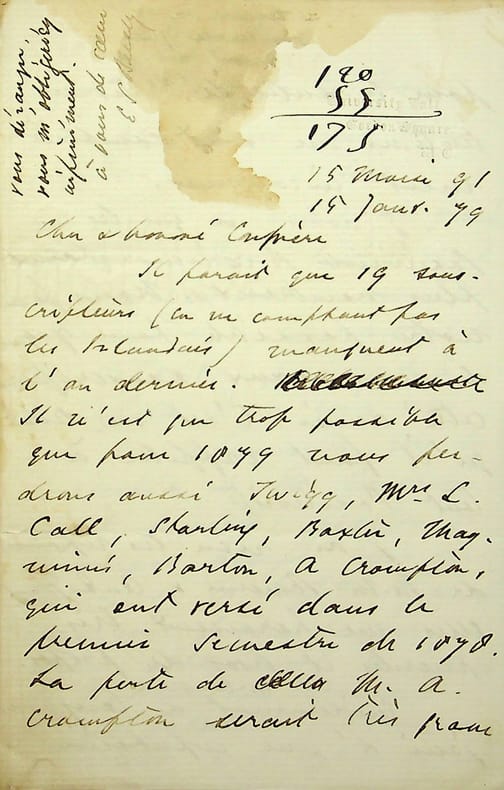 120
55
175
15 Moïse 91
15 Janv. 79
Cher & honoré Confrère
Il parait que 19 sous-
cripteurs (en ne comptant pas
les Irlandais) manquent à
l'an dernier.
Il n'est que trop possible
que pour 1879 nous per-
drons aussi Twigg, Mrs L.
Call, Starling, Baxter, Mag-
ninis, Barton, A Crompton,
qui ont versé dans le
premier Semestre de 1878.
La perte de M. A.
Crompton serait très grave
vous déranger,
vous m'obligerez
infiniment.
à vous de cœur